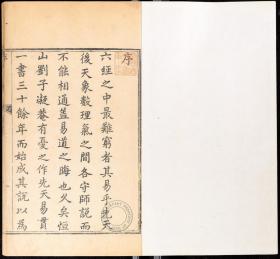 序
六經之中最難窮者其易乎先天
後天象數理氣之間各守師説而
不能相通蓋易道之晦也久矣恒
山劉子凝菴有憂之作先天易貫
一書三十餘年而始成其説以爲